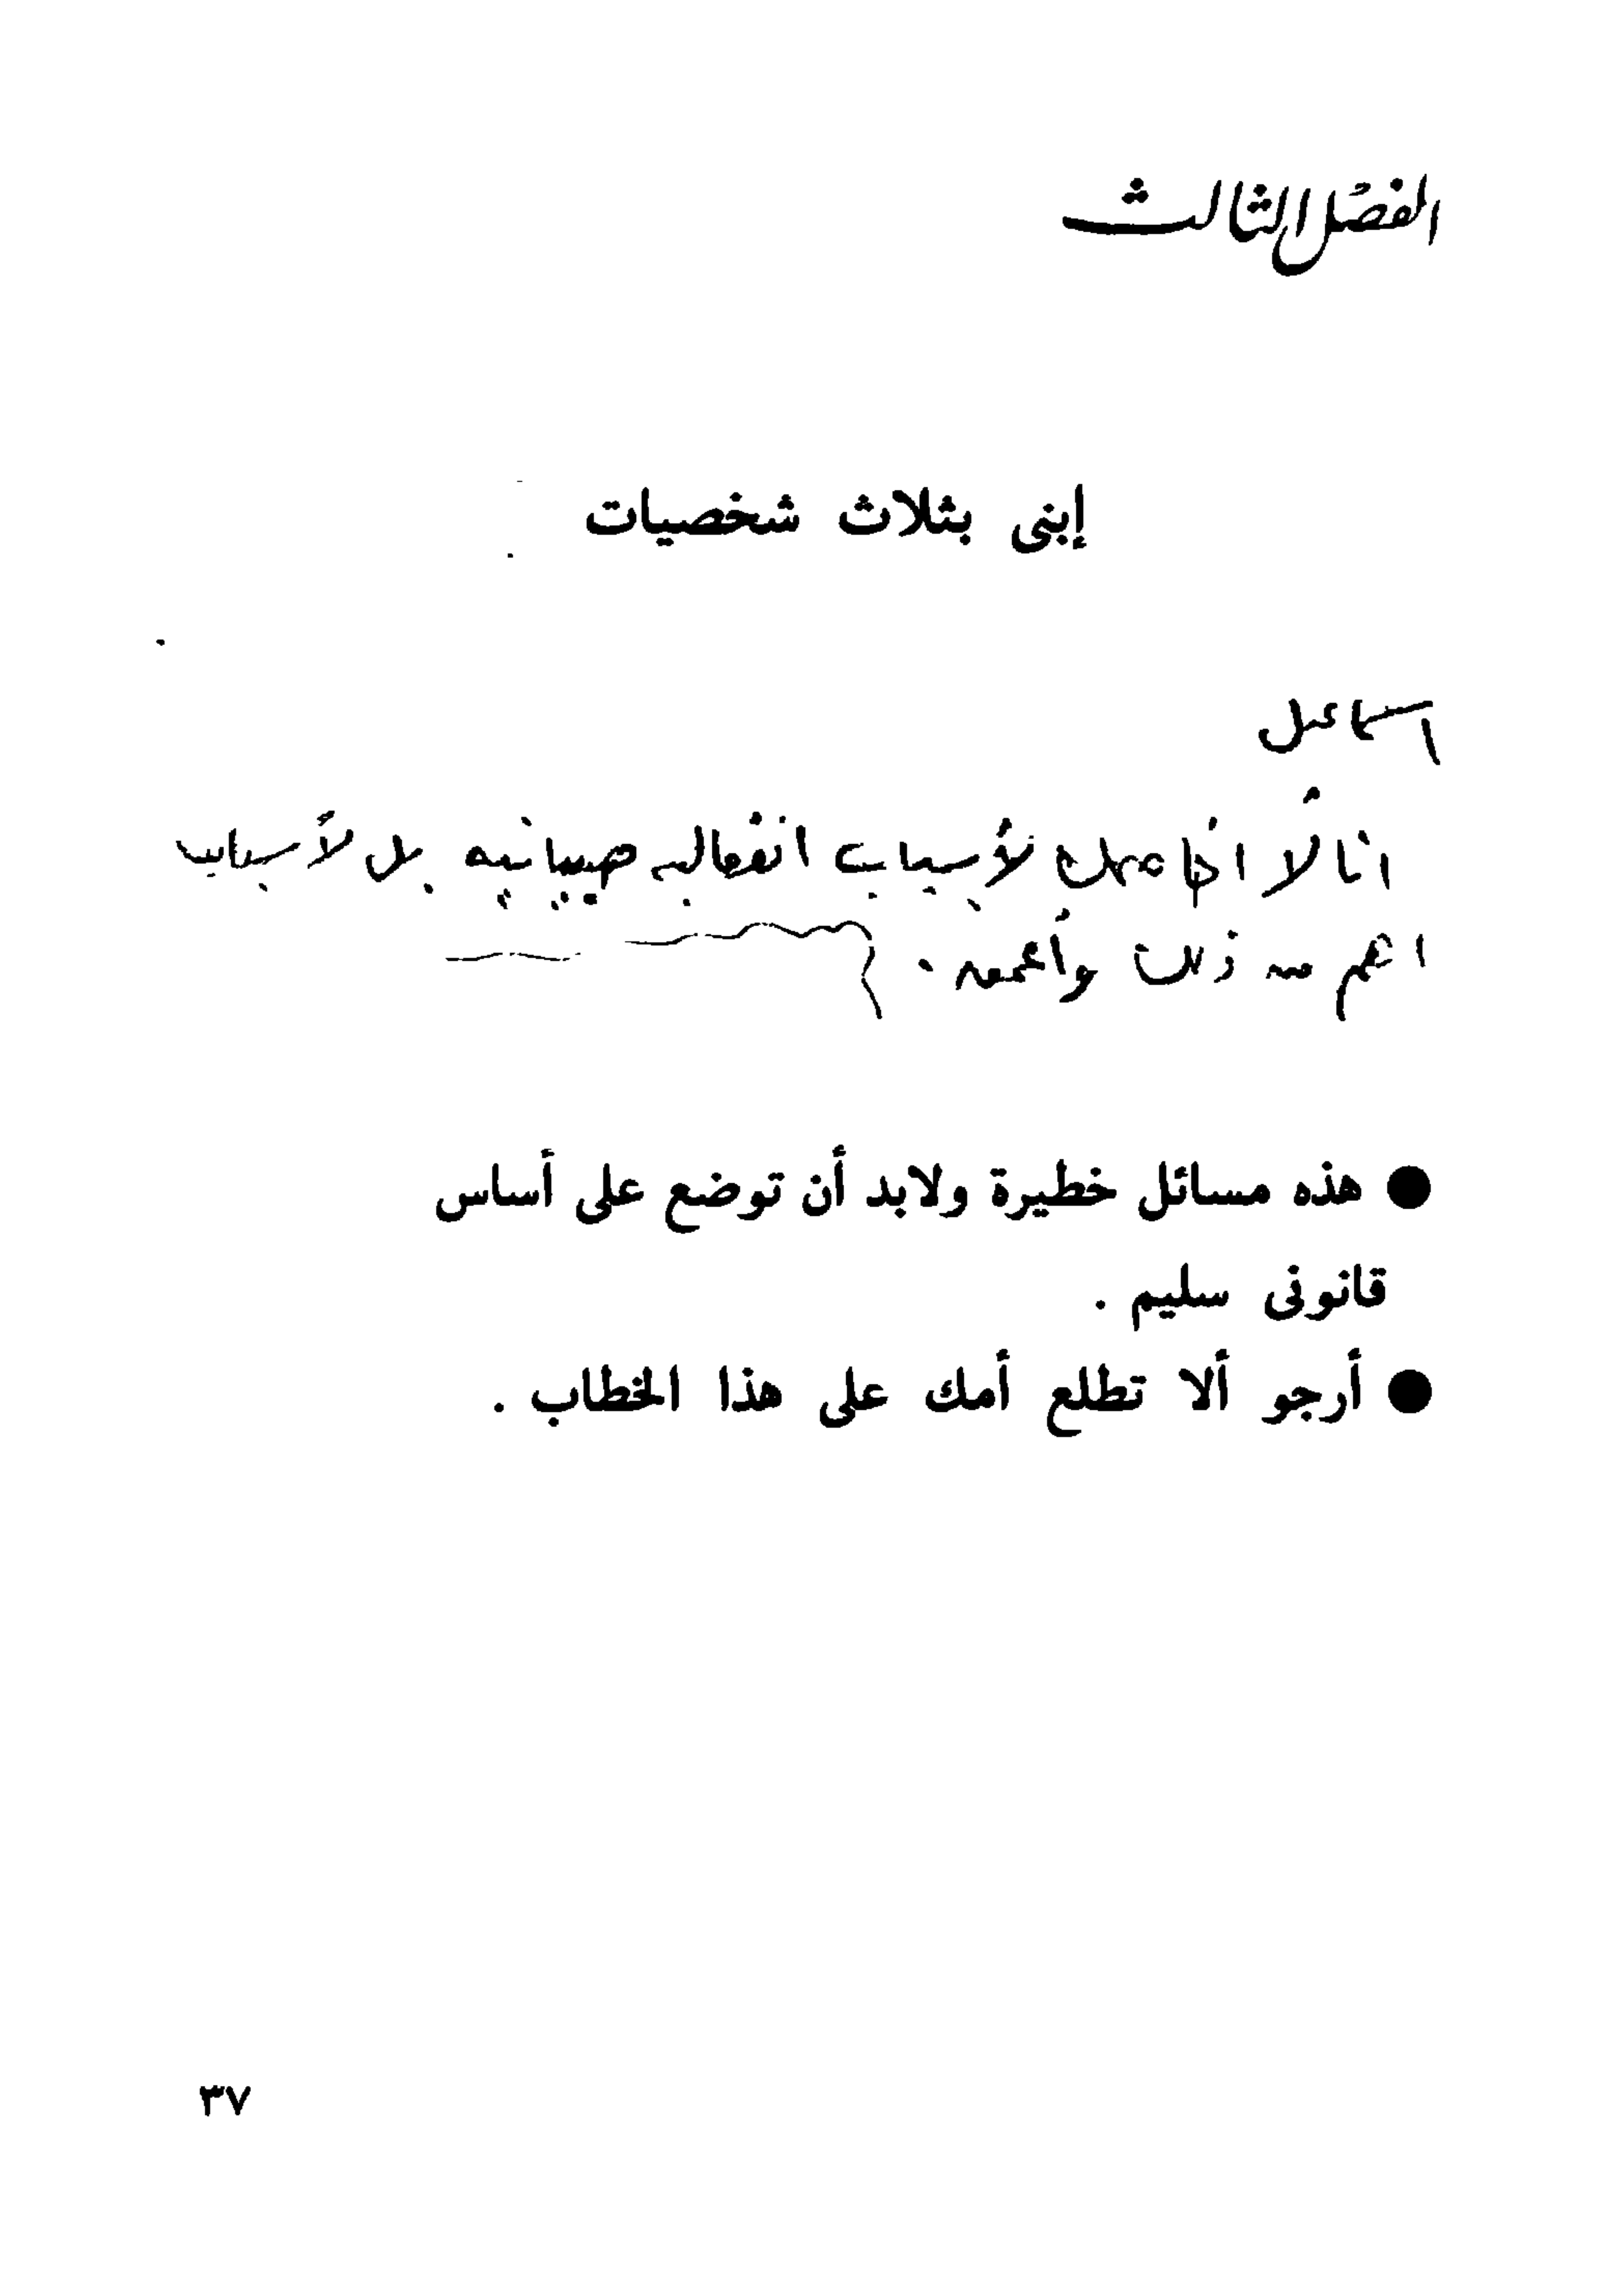 الفصل الثالث
إبنى بثلاث شخصيات
اسماعيل
انا لا اخاصمك لأسباب انفعاليه صبيانيه بل لأسباب
اهم من ذلك وأعمق .
● هذه مسائل خطيرة ولابد أن توضع على أساس
قانونى سليم .
● أرجو ألا تطلع أمك على هذا الخطاب .
٣٧